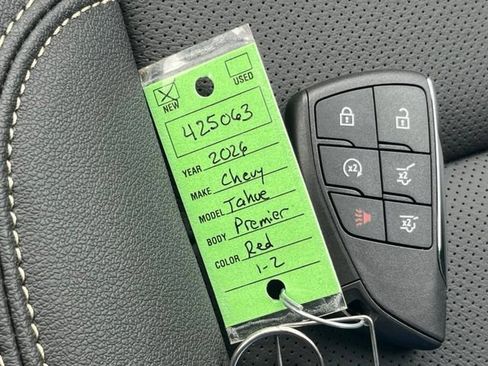 NEW USED
425063
YEAR 2026
MAKE Chevy
MODEL Tahoe
BODY Premier
COLOR Red
1-2
x2 x2
x2